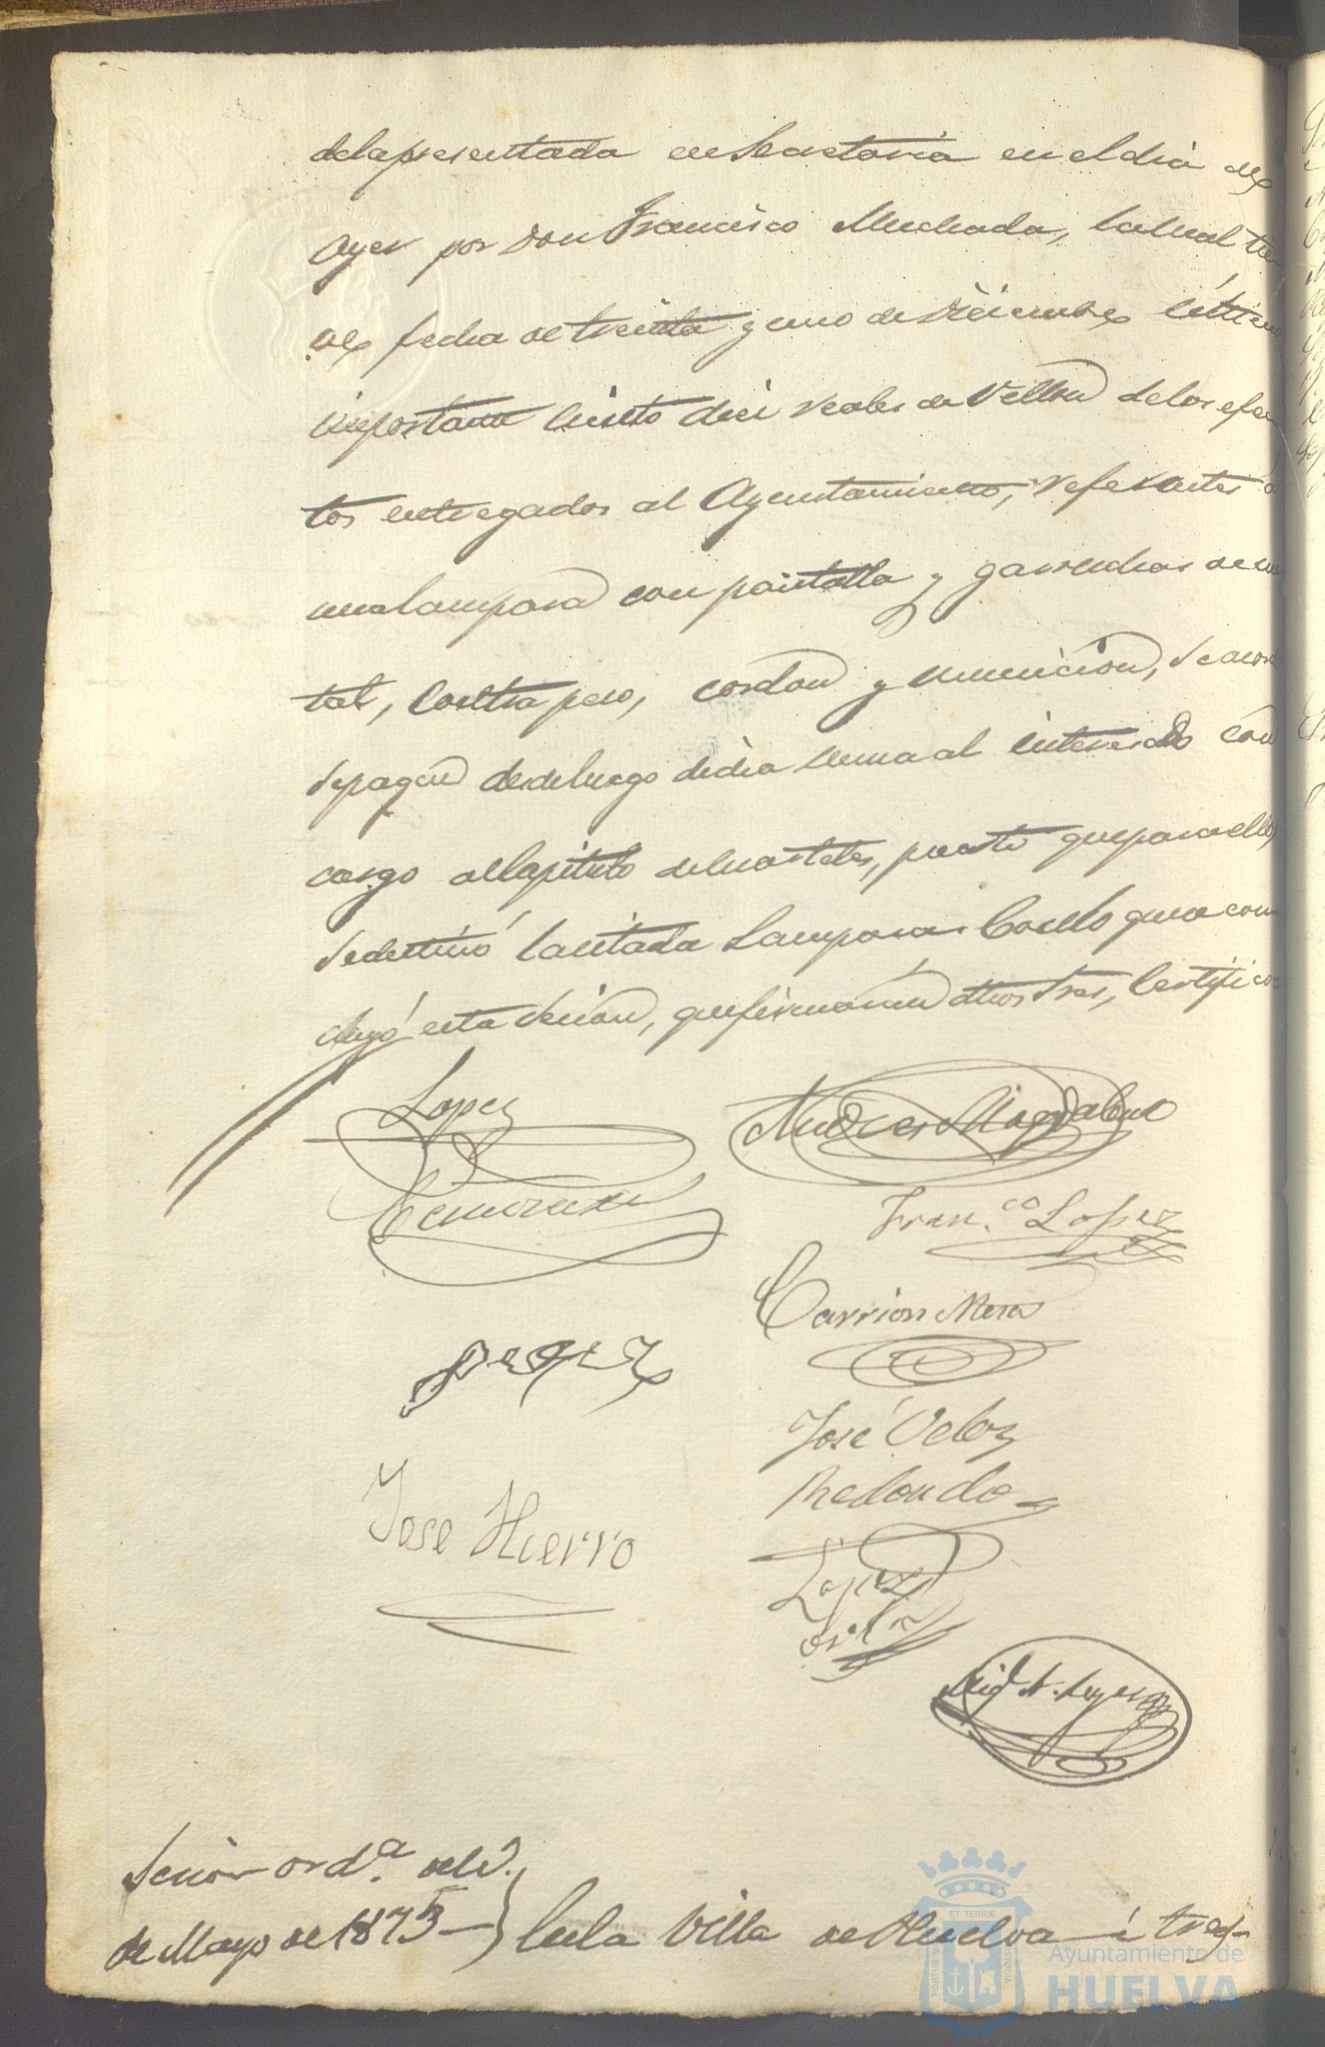 dela presentada en Secretaria en el dia de
ayer por Don Francisco Muchada, la cual tie
ne fecha de treinta y uno de Diciembre último
importante ciento diez reales de vellon de los efec
tos entregados al Ayuntamiento, referentes a
una lampara con pantalla y garruchas de me
tal, contrapeso, cordon y municion, se acordó
se pague desde luego dicha suma al interesado con
cargo al Capitulo de Cuarteles, puesto que para ellos
se destinó la citada Lampara. Con lo que se con
cluyó esta sesion, que firmaran dichos Sres, Certifico=
Lopez
Andres Magdaleno
Fran.co Lopez
Carrion Mora
Jose Hierro
José Veloz
Redondo
Lopez
Sesion ord.a del 3.
de Mayo de 1873
En la Villa de Huelva á tres
ET TERRÆ
Ayuntamiento de
HUELVA